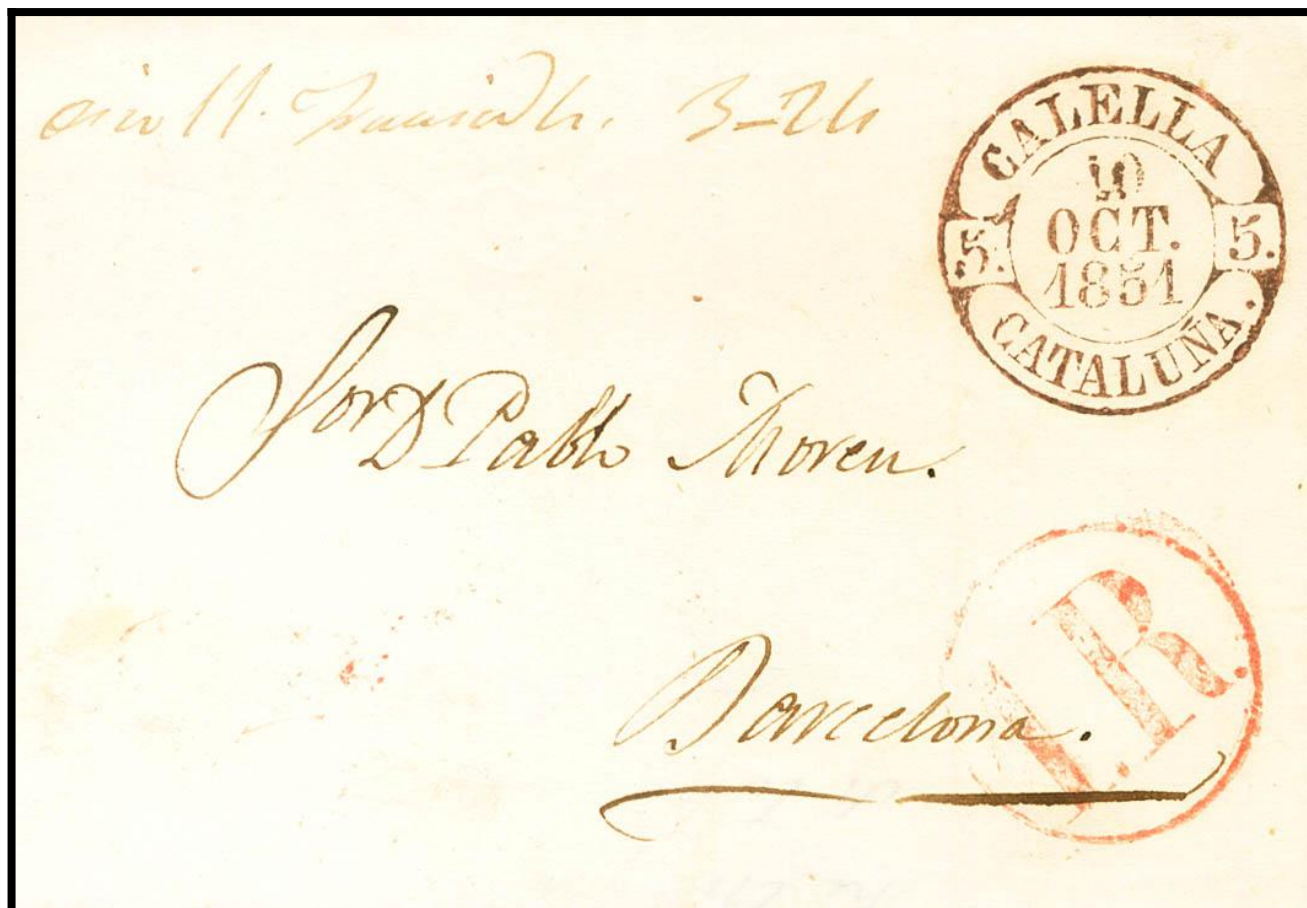 CALELLA
10
OCT.
1851
5. 5.
CATALUÑA.
Sor D Pablo Thoren.
1R.
Barcelona.